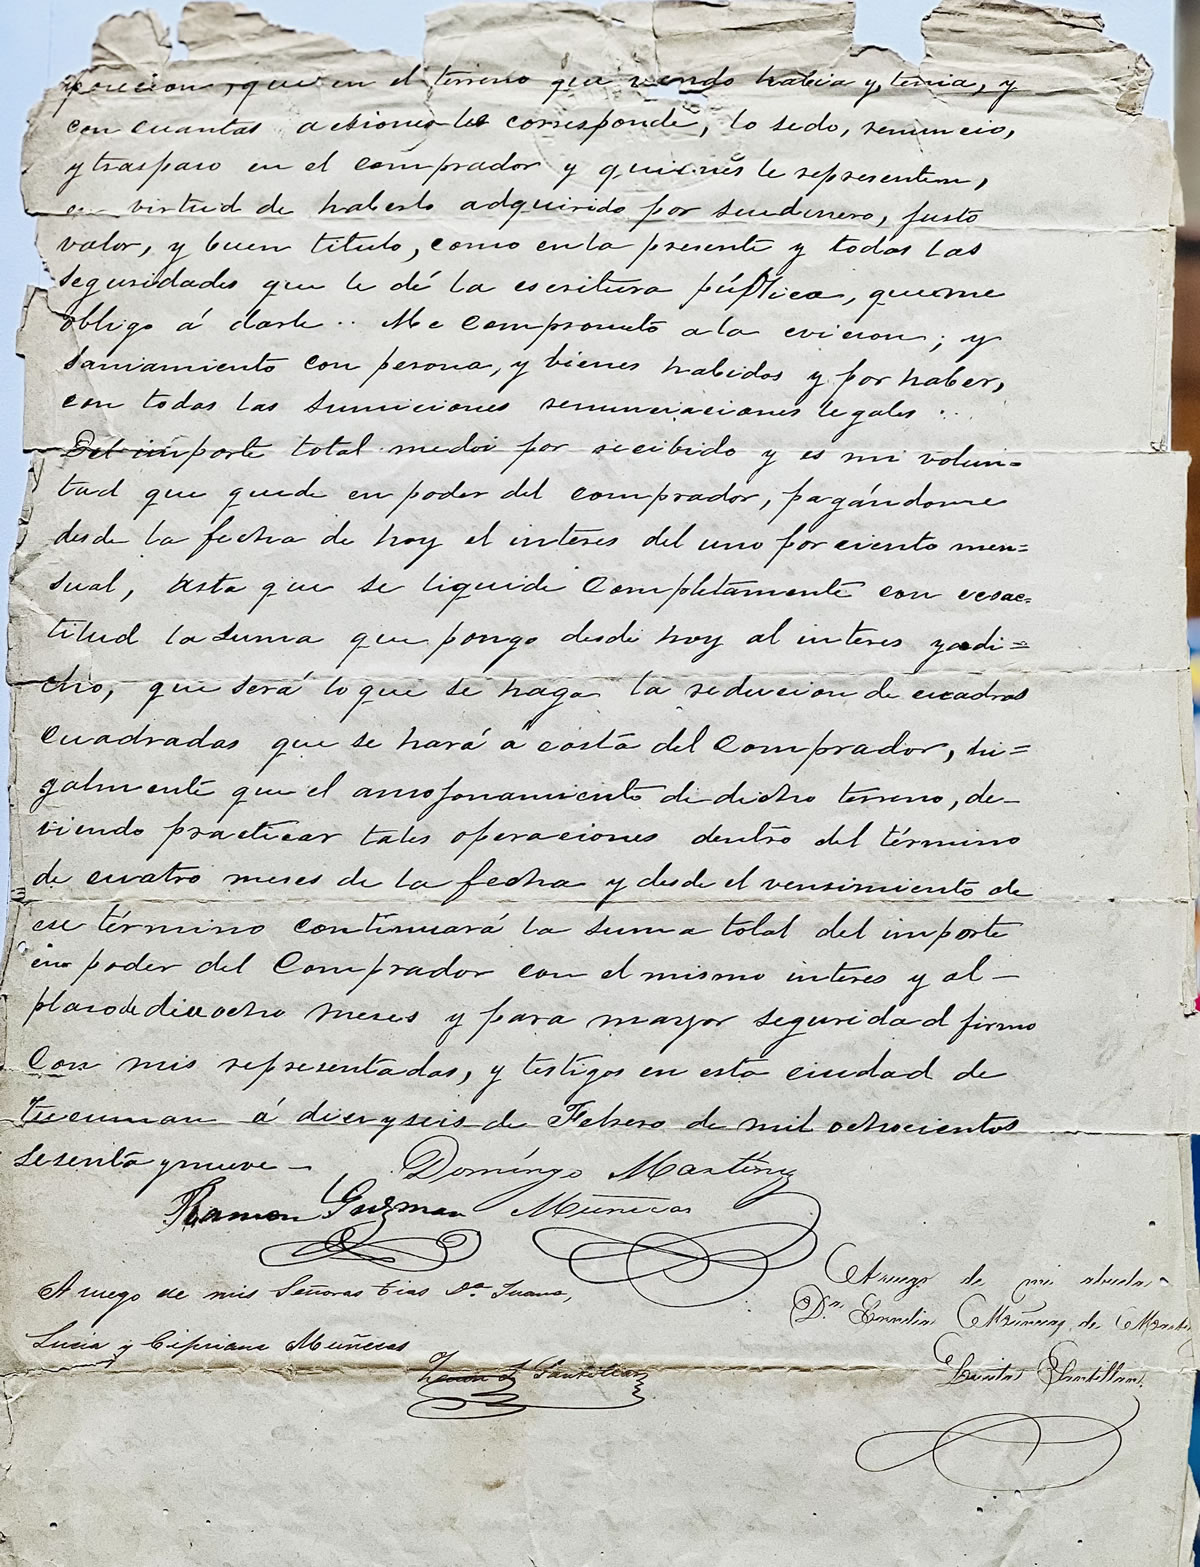 posicion, que en el terreno que vendo habia y tenia, y
con cuantas acsiones les corresponde, lo sedo, renuncio,
y trasparo en el comprador y quienes le representen,
en virtud de haberlo adquirido por su dinero, justo
valor, y buen titulo, como en la presente y todas las
seguridades que le dé la escritura pública, que me
obligo á darle.. Me comprometo a la evicion; y
saniamiento con persona, y bienes habidos y por haber,
con todas las sumiciones renunciaciones legales..
Del importe total me doi por recibido y es mi volun=
tad que quede en poder del comprador, pagándome
desde la fecha de hoy el interes del uno por ciento men=
sual, asta que se liquide completamente con ecsac=
titud la suma que pongo desde hoy al interes ya di=
cho, que será lo que se haga la reduccion de cuadras
cuadradas que se hará a costa del Comprador, hi=
galmente que el amojonamiento de dicho terreno, de-
viendo practicar tales operaciones dentro del término
de cuatro meses de la fecha y desde el vensimiento de
ese término continuará la suma total del importe
en poder del Comprador con el mismo interes y al-
plaso de diez ocho meses y para mayor seguridad firmo
Con mis representadas, y testigos en esta ciudad de
Tucuman á diez y seis de Febrero de mil ochocientos
sesenta y nueve- Domíngo Martínez
Ramon Guzman Muñecas
A ruego de mis Señoras tias Da. Juana,
Lucia y Cipriana Muñecas
Santillan
A ruego de mi abuela
Da. Muñecas de
Benita Santillan.